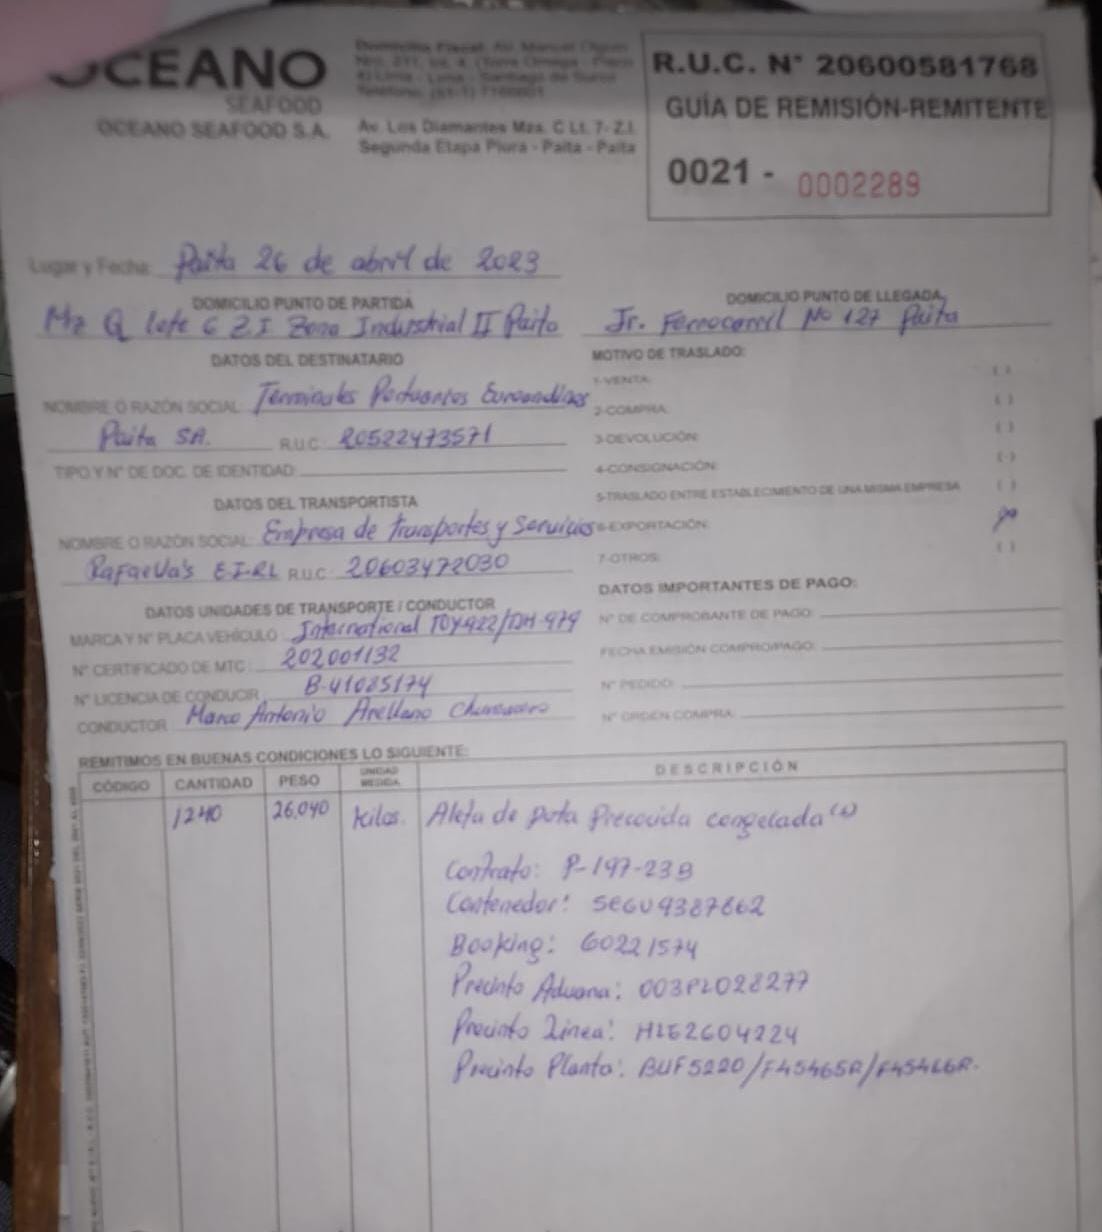 OCEANO
SEAFOOD
OCEANO SEAFOOD S.A.
Domicilio Fiscal: Av. Manuel Olguin
Av. Los Diamantes Mza. C Lt. 7- Z.I.
Segunda Etapa Piura - Paita - Paita
R.U.C. N° 20600581768
GUÍA DE REMISIÓN-REMITENTE
0021 - 0002289
Lugar y Fecha: Paita 26 de abril de 2023
DOMICILIO PUNTO DE PARTIDA
Mz Q lote 6 Z I Zona Industrial II Paita
DOMICILIO PUNTO DE LLEGADA
Jr. Ferrocarril No 127 Paita
DATOS DEL DESTINATARIO
NOMBRE O RAZÓN SOCIAL: Terminales Portuarios Euroandinos
Paita SA. R.U.C: 20522473571
TIPO Y N° DE DOC. DE IDENTIDAD:
DATOS DEL TRANSPORTISTA
NOMBRE O RAZÓN SOCIAL: Empresa de transportes y Servicios
Rafaella's E.I.RL R.U.C: 20603472030
DATOS UNIDADES DE TRANSPORTE / CONDUCTOR
MARCA Y N° PLACA VEHÍCULO: International
N° CERTIFICADO DE MTC: 202001132
N° LICENCIA DE CONDUCIR B-41085174
CONDUCTOR Marco Antonio Arellano
MOTIVO DE TRASLADO:
1-VENTA: ( )
2-COMPRA: ( )
3-DEVOLUCIÓN: ( )
4-CONSIGNACIÓN: ( )
5-TRASLADO ENTRE ESTABLECIMIENTO DE UNA MISMA EMPRESA ( )
6-EXPORTACIÓN:
7-OTROS: ( )
DATOS IMPORTANTES DE PAGO:
N° DE COMPROBANTE DE PAGO:
FECHA EMISIÓN COMPRO/PAGO:
N° PEDIDO:
N° ORDEN COMPRA:
REMITIMOS EN BUENAS CONDICIONES LO SIGUIENTE:
CÓDIGO CANTIDAD PESO UNIDAD MEDIDA DESCRIPCIÓN
1240 26,040 kilos. Aleta de pota Precocida congelada
Contrato: P-197-23B
Contenedor: SEGU9387662
Booking: 60221574
Precinto Aduana: 003PL028277
Precinto Linea: HLE2604224
Precinto Planta: BUF5220/F45465R/F45466R.